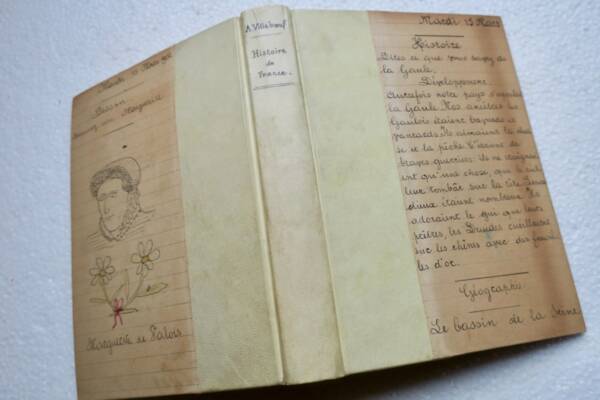 Mardi 15 Mars
Dessin
Marguerite
Marguerite de Valois
A. Villebœuf
Histoire
de
France.
Mardi 15 Mars
Histoire
Dites ce que vous savez de
la Gaule.
Développement
Autrefois notre pays s'appelait
la Gaule. Nos ancêtres les
Gaulois étaient braves et
ils aimaient la chas
se et la pêche.
guerriers: ils ne craignai
ent qu'une chose, que le ciel
leur tombât sur la tête. Leurs
dieux étaient nombreux. Ils
adoraient le gui que leurs
prêtres, les Druides cueillaient
sur les chênes avec des faucil
les d'or.
Géographie
Le bassin de la Seine